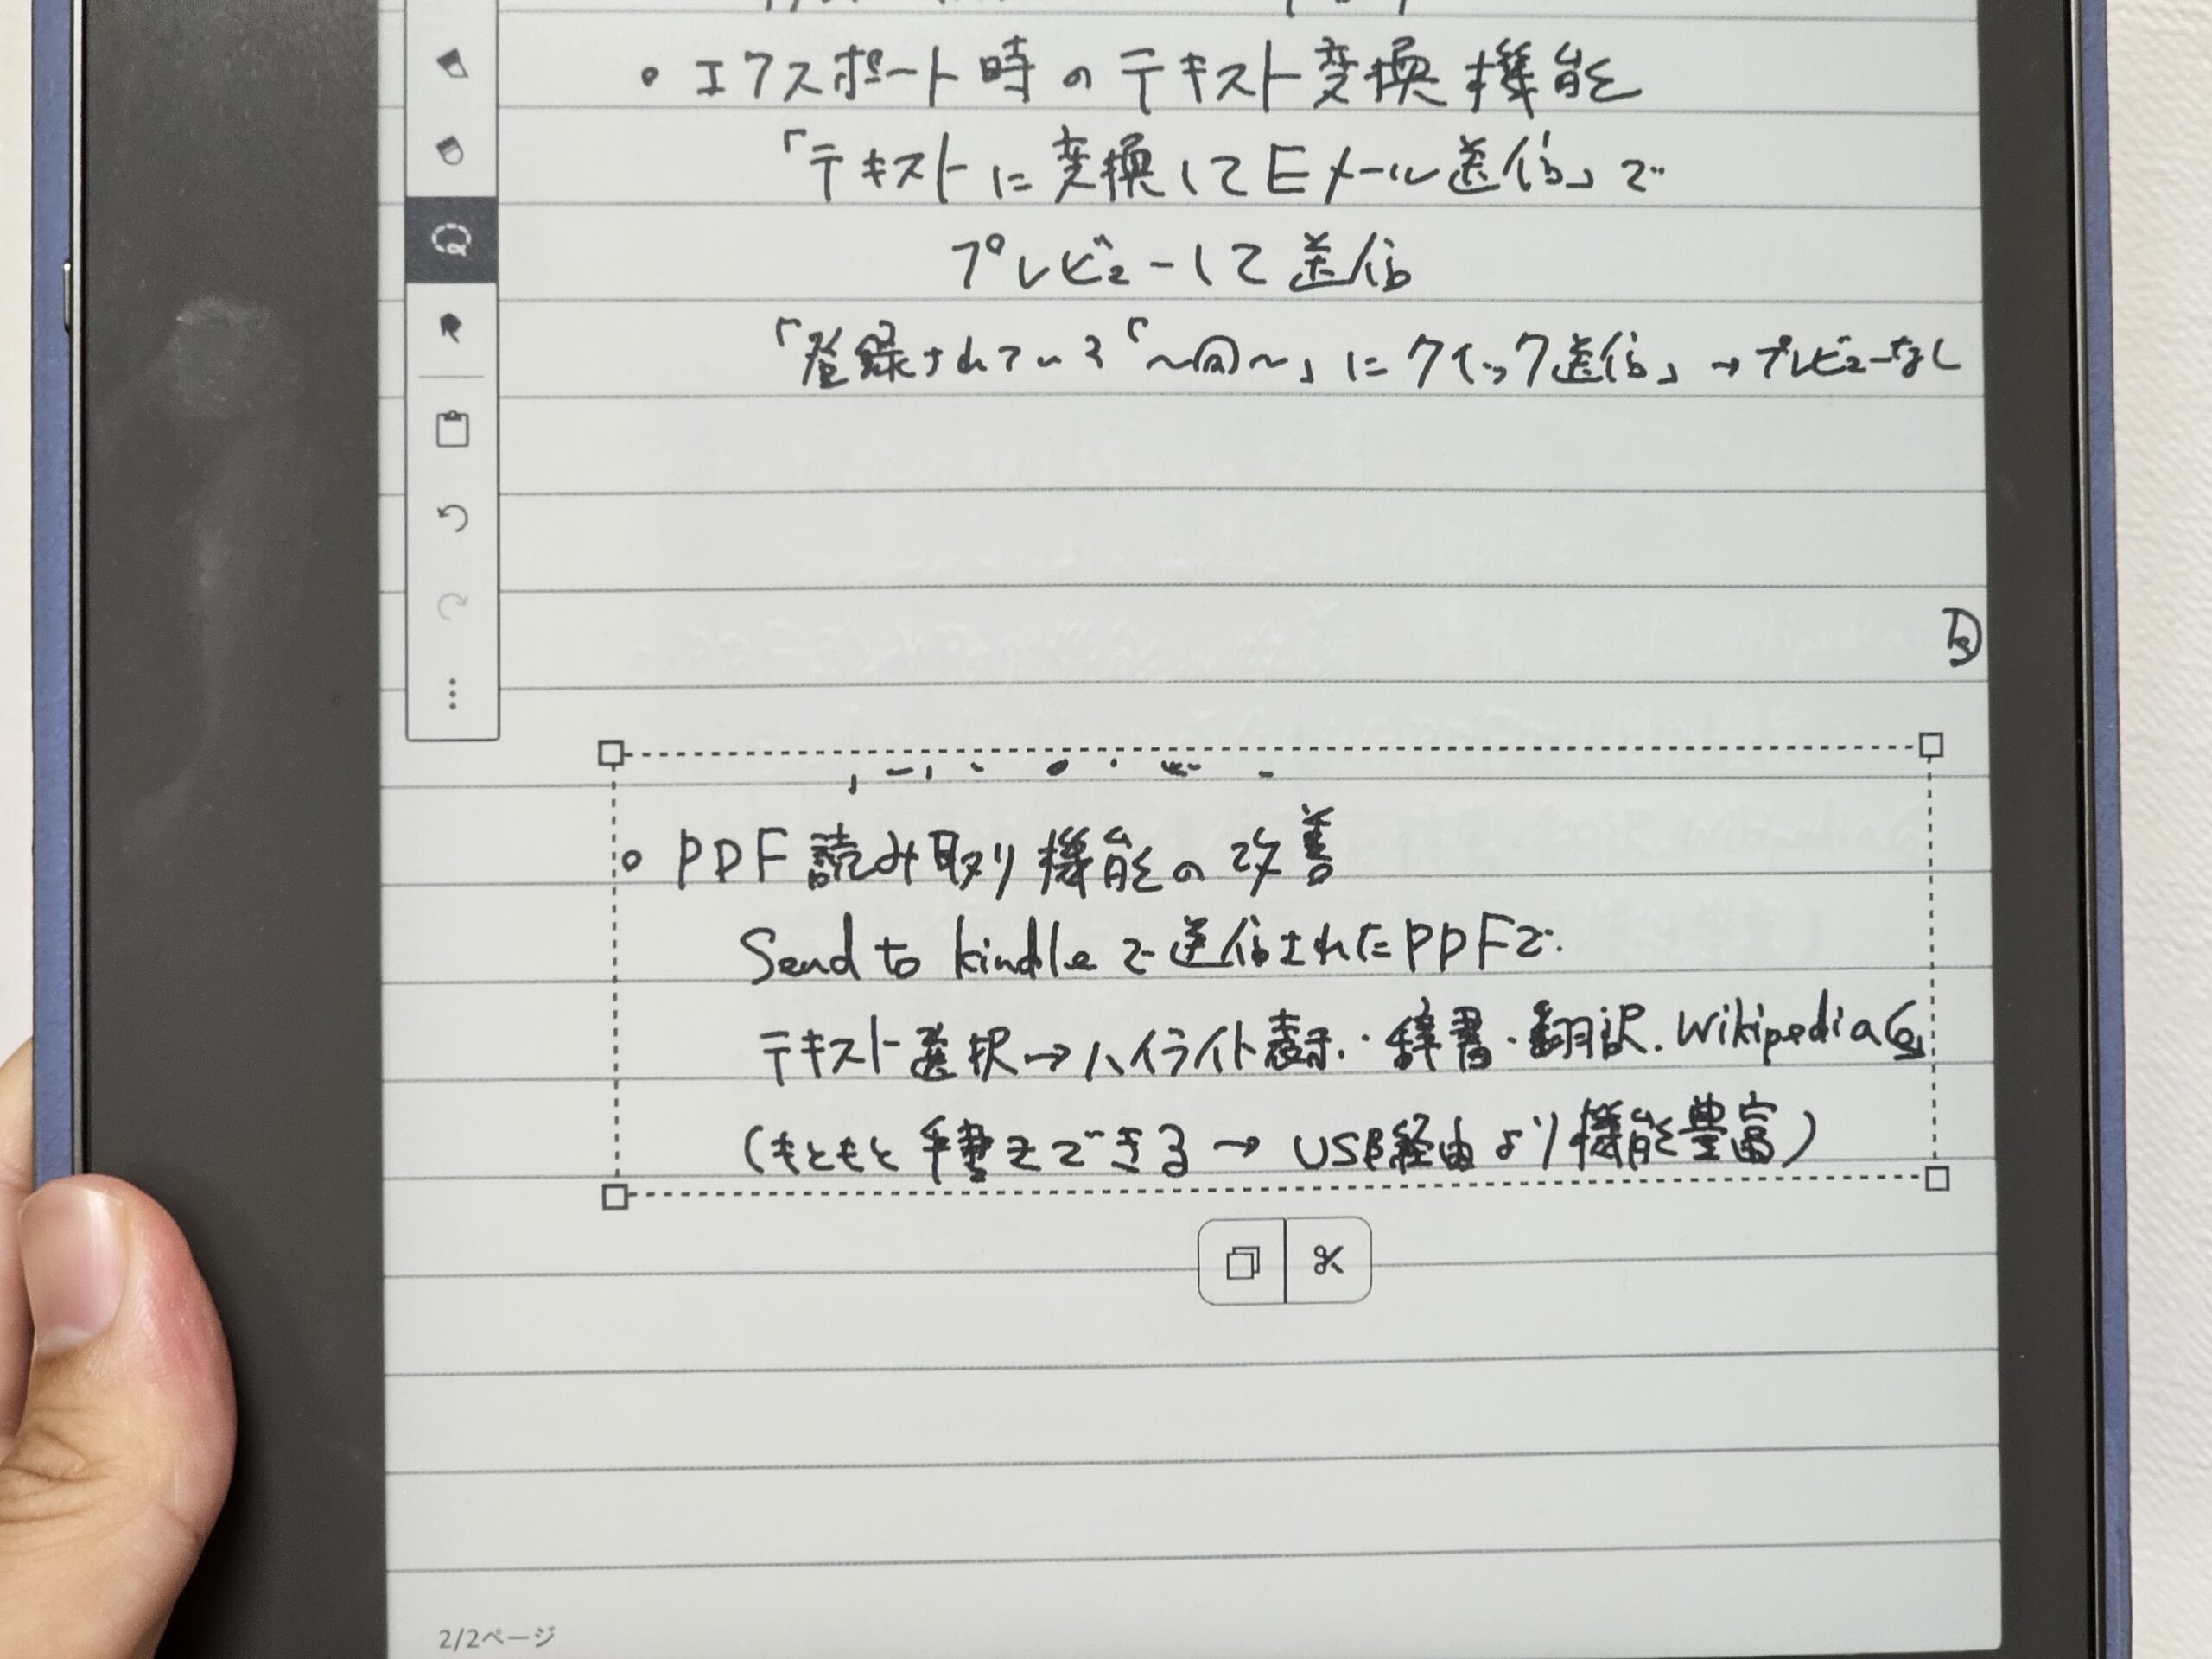 • エクスポート時のテキスト変換機能
「テキストに変換してEメール送信」で
プレビューして送信
「登録されている「～」にクイック送信」→プレビューなし
• PDF読み取り機能の改善
Send to kindleで送信されたPDFで
テキスト選択→ハイライト表示・辞書・翻訳.Wikipedia
(もともと手書きできる→USB経由より機能豊富)
2/2ページ